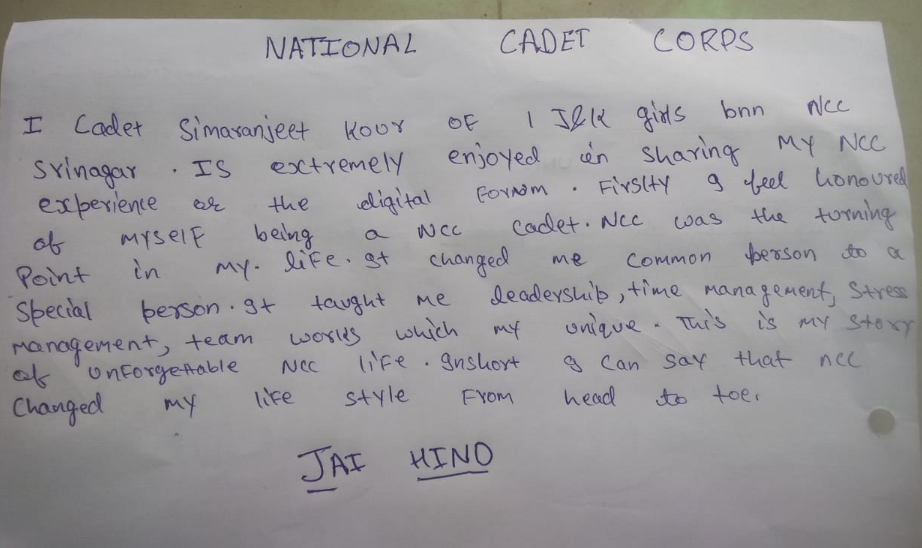 NATIONAL CADET CORPS
I Cadet Simaranjeet Kour OF 1 J&K girls bnn NCC
Srinagar. IS extremely enjoyed in sharing MY NCC
experience or the digital Fornom. Firslty I feel honoured
of MYSelF being a NCC Cadet. NCC was the turning
Point in my. liFe. It changed me common person to a
Special person. It taught me leadership, time management, Stress
management, team works which my unique. This is my story
of UnForgettable NCC liFe. Inshort I Can say that ncc
Changed my liFe style From head to toe.
JAI HIND